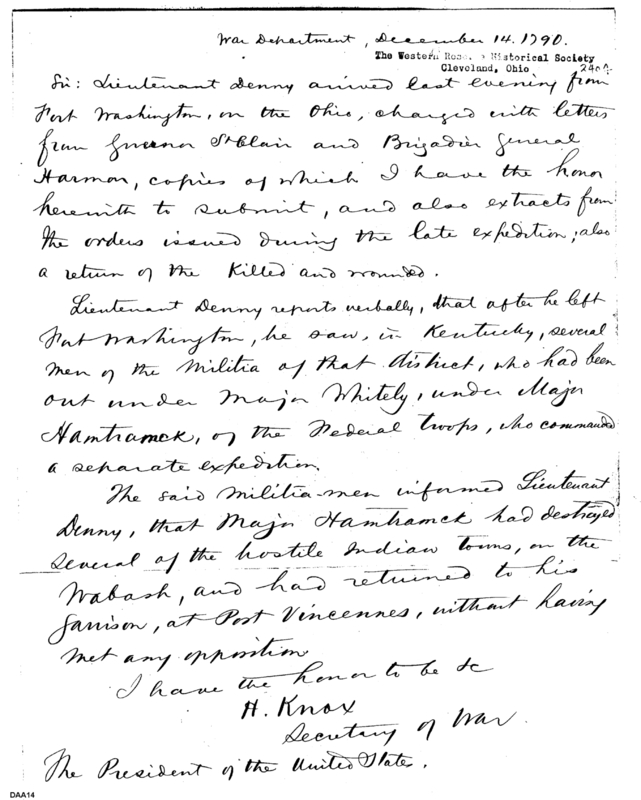 War Department, December 14. 1790.
The Western Rese e Historical Society
Cleveland, Ohio
Sir: Lieutenant Denny arrived last evening from
Fort Washington, on the Ohio, charged with letters
from Governor St Clair and Brigadier General
Harmar, copies of which I have the honor
herewith to submit, and also extracts from
the orders issued during the late expedition; also
a return of the killed and wounded.
Lieutenant Denny reports verbally, that after he left
Fort Washington, he saw, in Kentucky, several
men of the Militia of that district, who had been
out under Major Whitely, under Major
Hamtramck, of the Federal troops, who commanded
a separate expedition.
The said Militia-men informed Lieutenant
Denny, that Major Hamtramck had destroyed
several of the hostile Indian towns, on the
Wabash, and had returned to his
garrison, at Post Vincennes, without having
met any opposition
I have the honor to be &c
H. Knox
Secretary of War.
The President of the United States.
DAA14